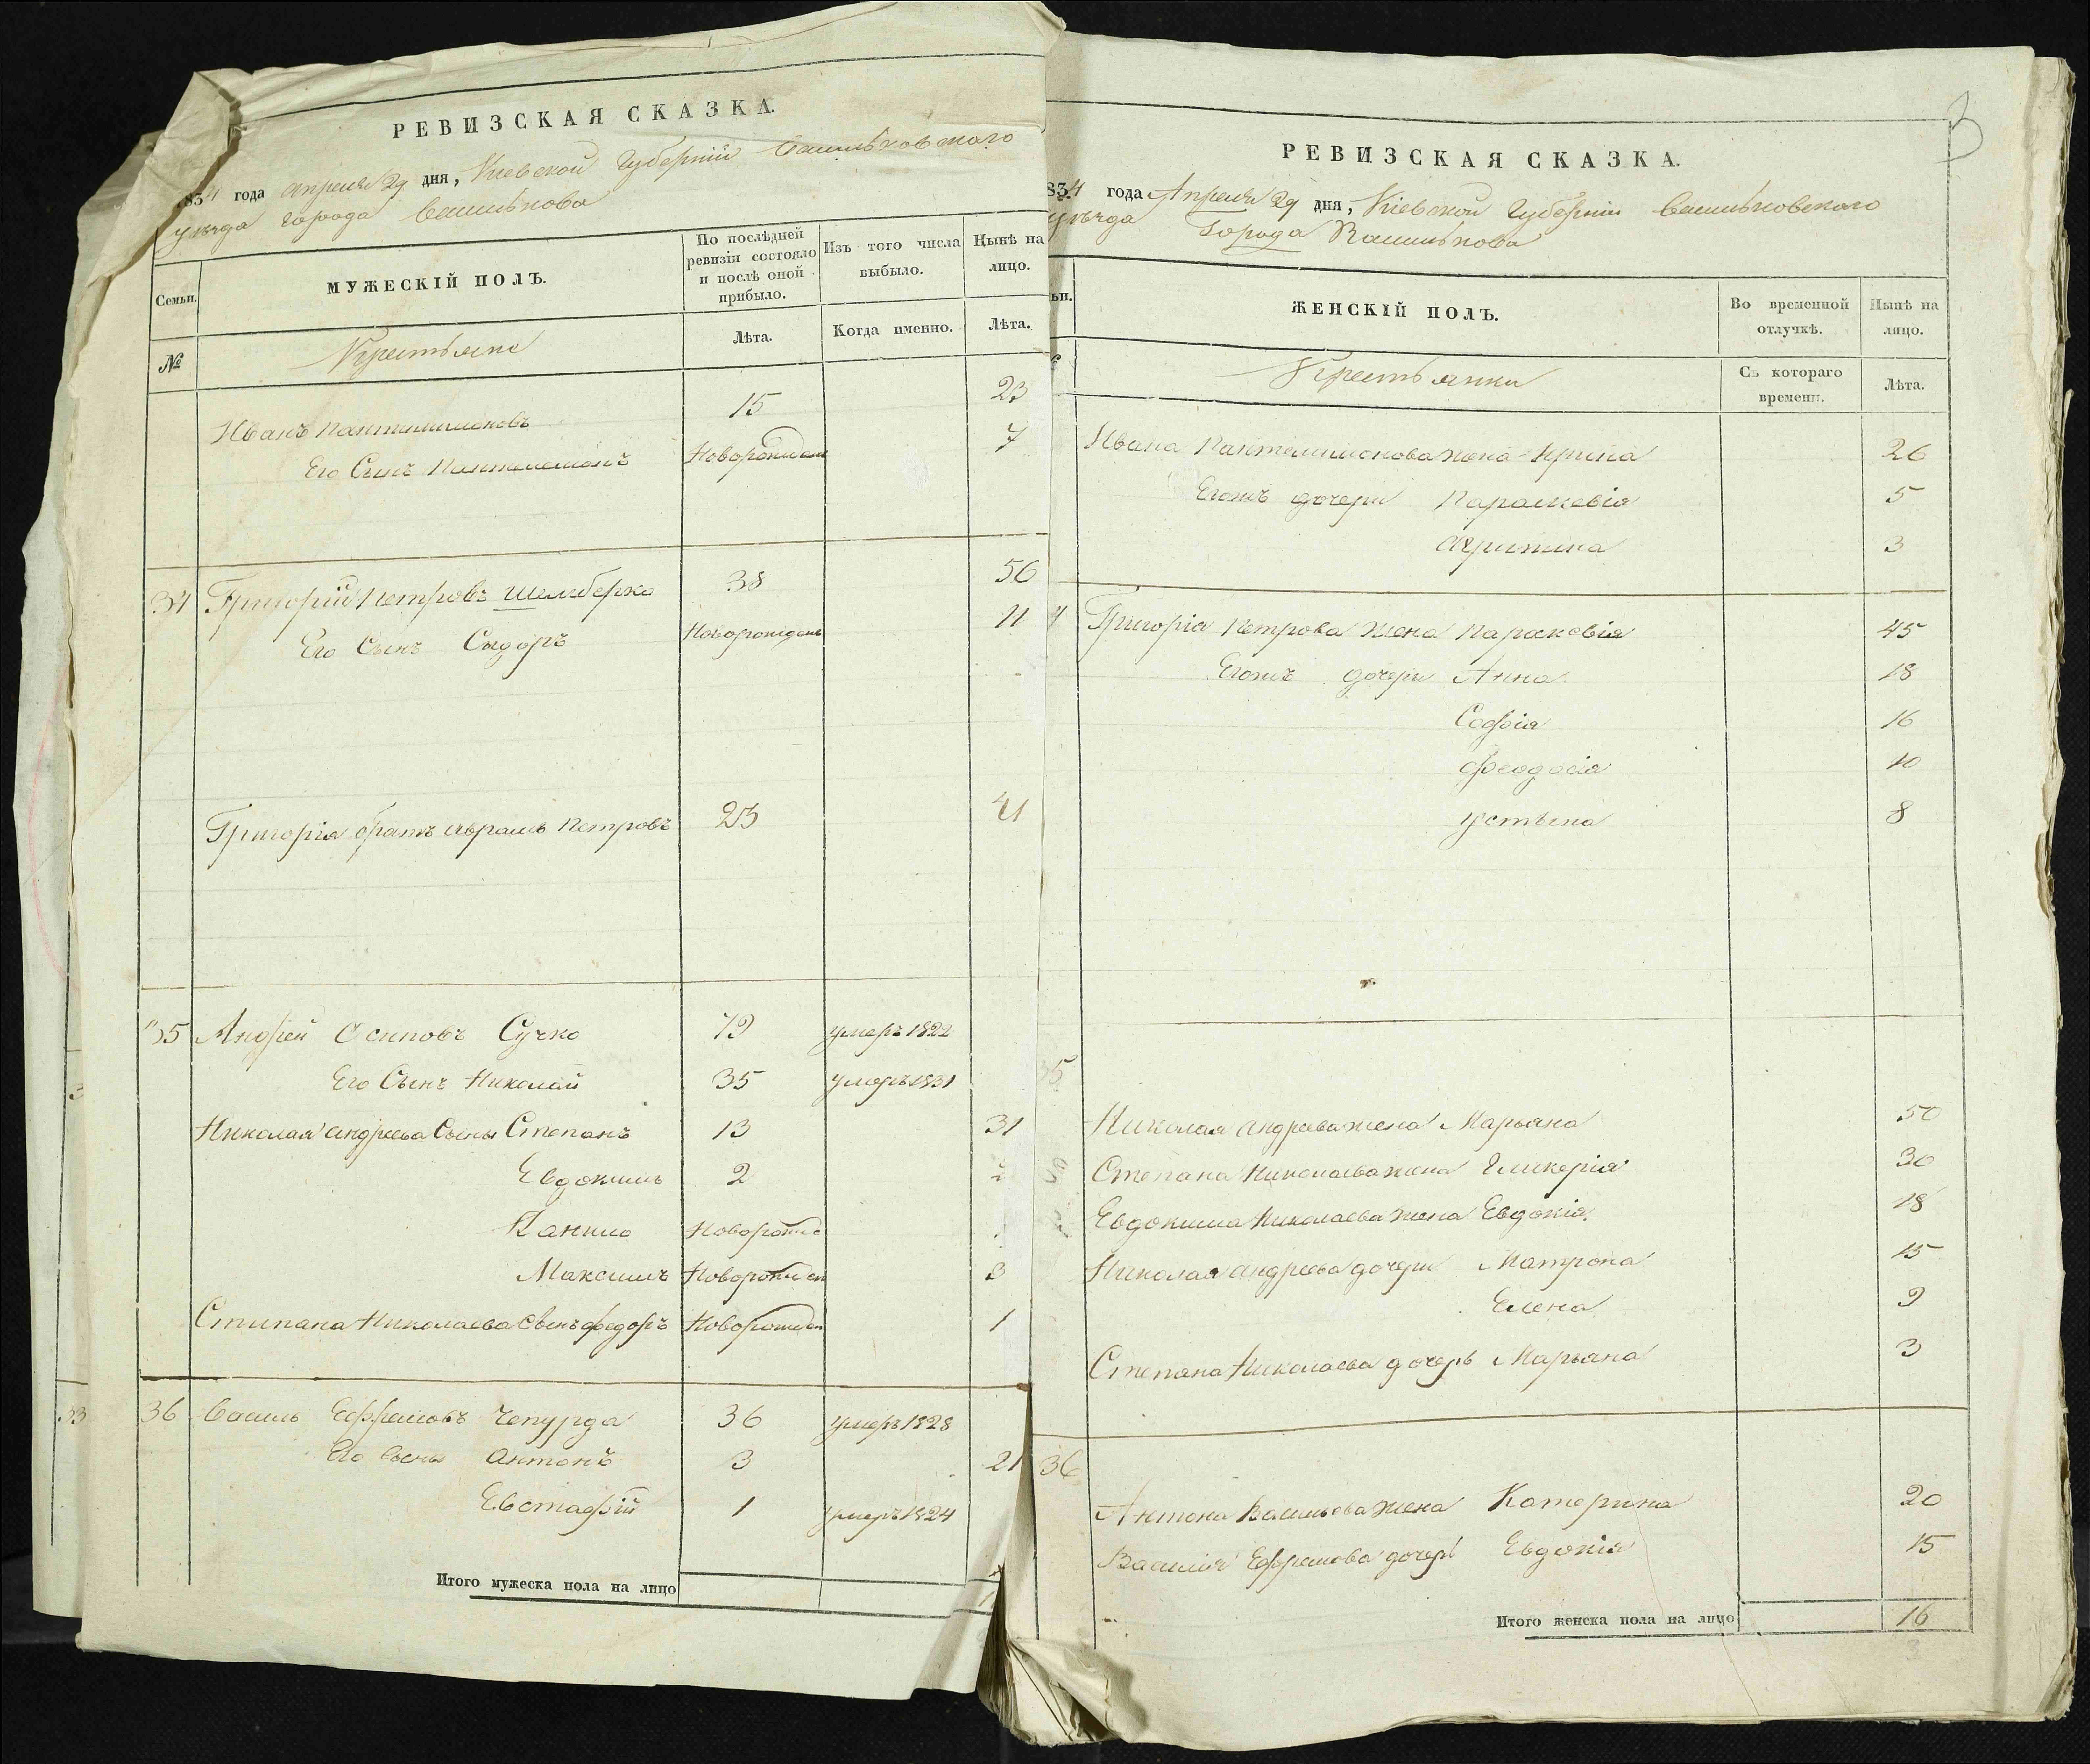 РЕВИЗСКАЯ СКАЗКА.
1834 года Апреля 29 дня, Кіевской Губерніи Васильковскаго
уѣзда города Василькова
Семьи.
МУЖЕСКІЙ ПОЛЪ.
По послѣдней ревизіи состояло и послѣ оной прибыло.
Изъ того числа выбыло.
Нынѣ на лицо.
№
Крестьяне
Лѣта.
Когда именно.
Лѣта.
Иванъ Пантилимоновъ 15 23
Его Сынъ Пантелемонъ Новорожден 7
34 Григорій Петровъ Шелыберко 38 56
Его Сынъ Сыдоръ Новорожден 11
Григорія братъ Аврамъ Петровъ 23 41
35 Андрей Осиповъ Сучко 79 умеръ 1822
Его Сынъ Николай 35 умеръ 1831
Николая Андреева Сыны Степанъ 13 31
Евдокимъ 2 2
Данило Новорожде
Максимъ Новорожден 3
Стипана Николаева Сынъ Федоръ Новорожден 1
36 Василь Ефремовъ Чепурда 36 умеръ 1828
Его Сыны Антонъ 3 21
Евстафій 1 умеръ 1824
Итого мужеска пола на лицо
3
РЕВИЗСКАЯ СКАЗКА.
834 года Апреля 29 дня, Кіевской Губерніи Васильковскаго
уѣзда Города Василькова
ьи.
ЖЕНСКІЙ ПОЛЪ.
Во временной отлучкѣ.
Нынѣ на лицо.
Крестьянки
Съ котораго времени.
Лѣта.
Ивана Пантелимонова жена Ирина 26
Егожъ дочери Параскевія 5
Акритина 3
4 Григорія Петрова жена Параскевія 45
Егожъ дочери Анна 18
Софія 16
Феодосія 10
Устына 8
35
Николая Андреева жена Марьяна 50
Степана Николаева жена Гликерія 30
Евдокима Николаева жена Евдокія 18
Николая Андреева дочери Матрона 15
Елена 9
Степана Николаева дочерь Марьяна 3
36
Антона Васильева жена Катерина 20
Василія Ефремова дочерь Евдокія 15
Итого женска пола на лицо 16